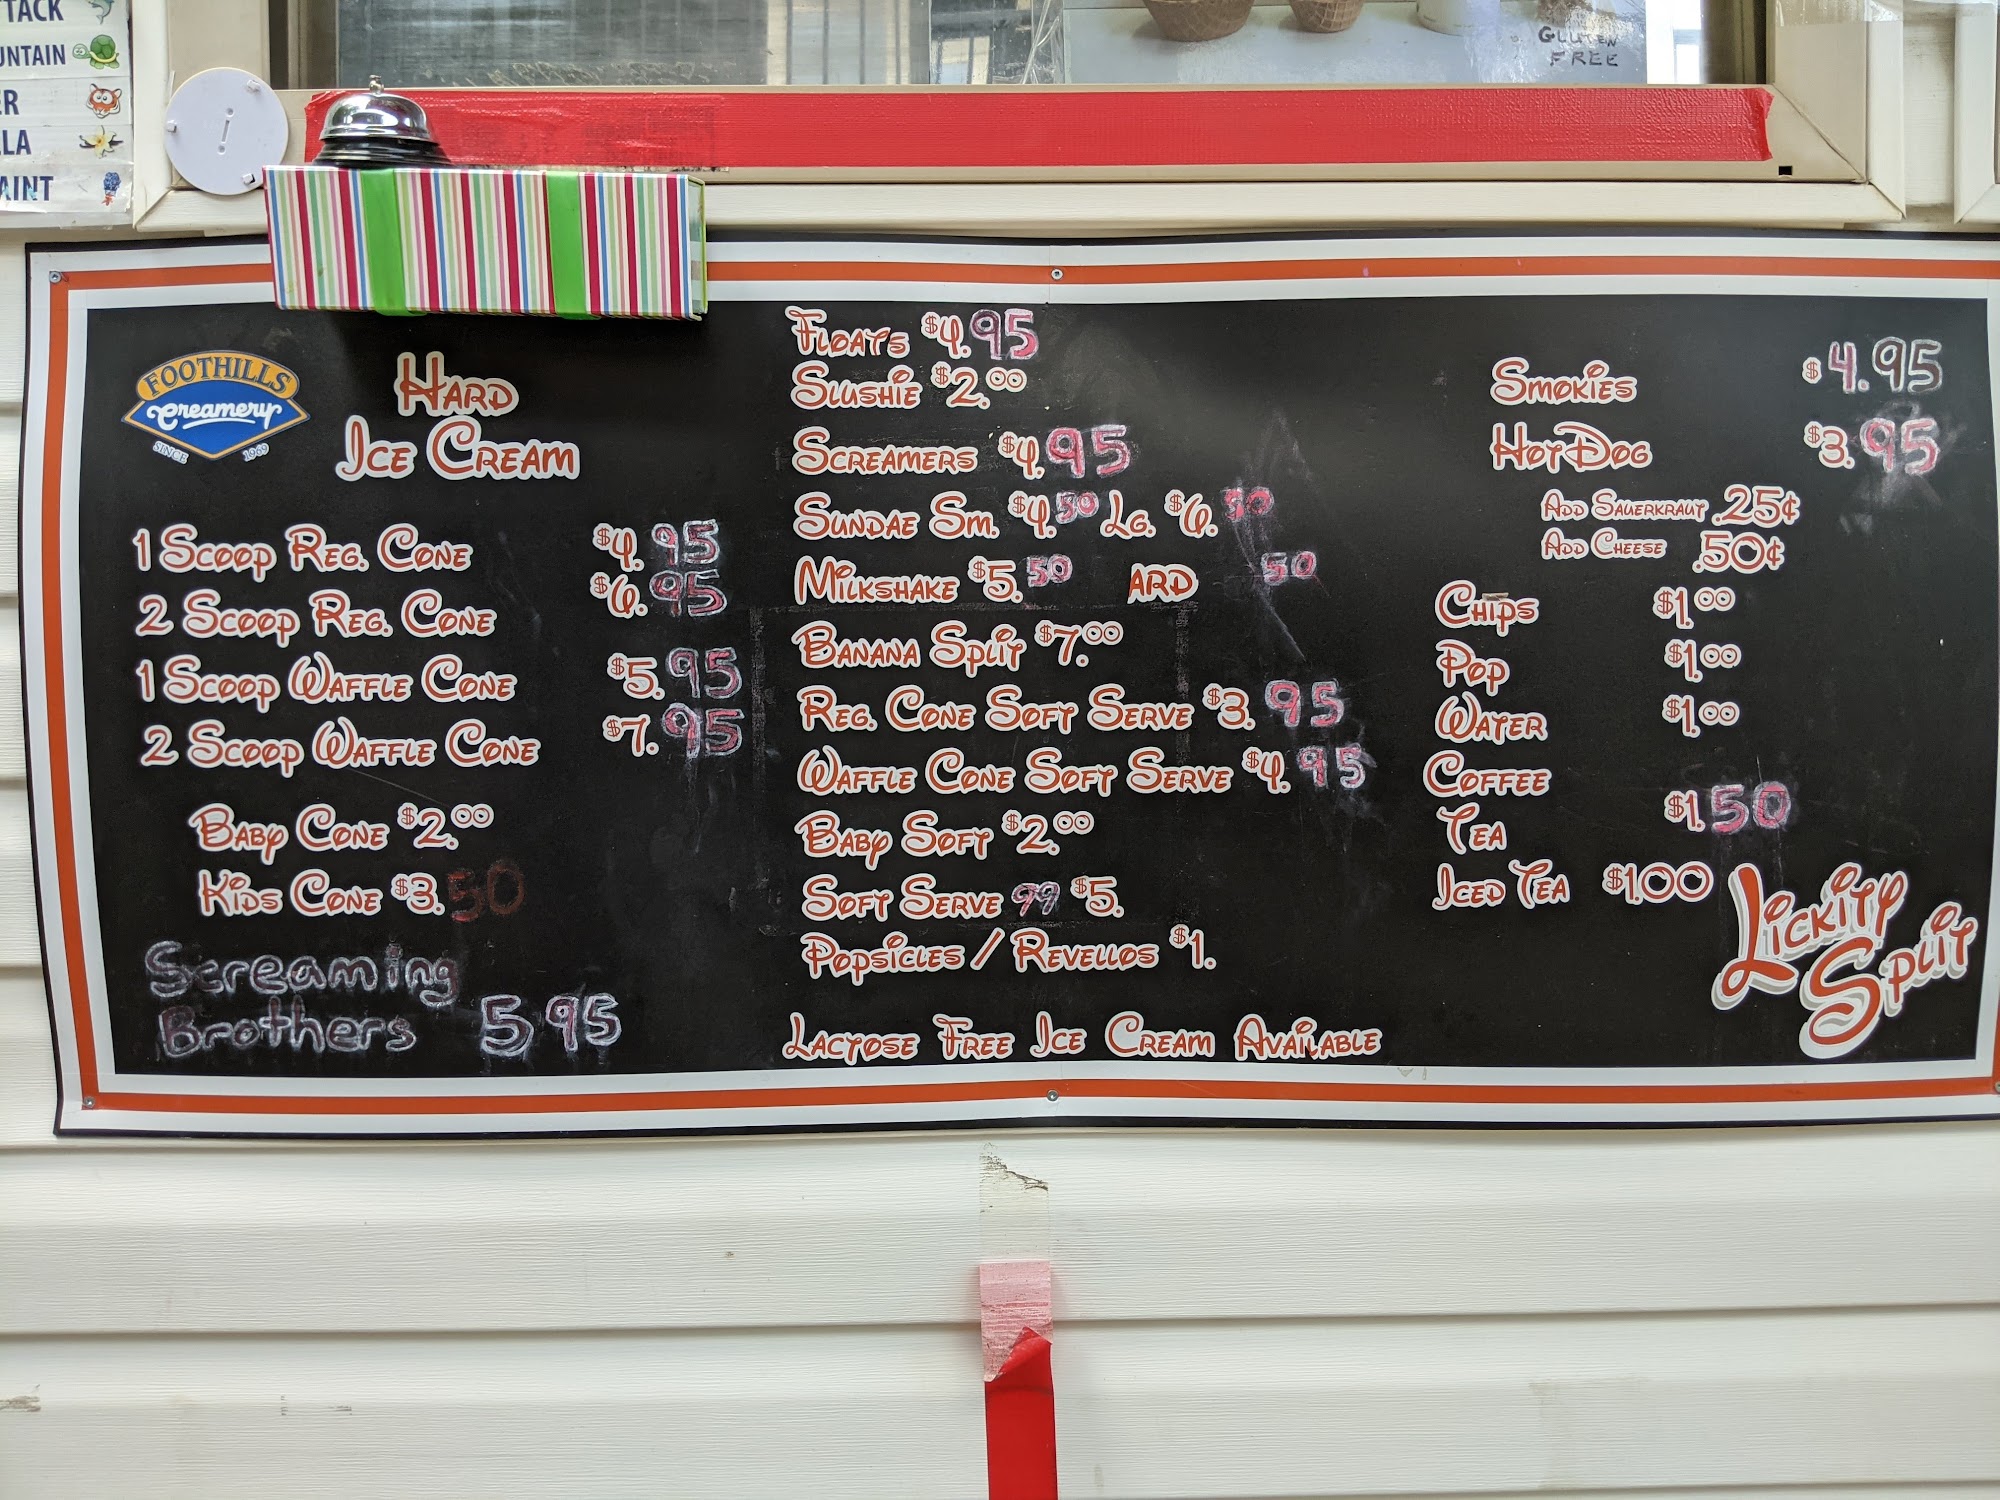 TTACK
UNTAIN
ER
LLA
AINT
GLUTEN
FREE
FOOTHILLS
Creamery
SINCE 1969
HARD
ICE CREAM
1 SCOOP REG. CONE $4.95
2 SCOOP REG. CONE $6.95
1 SCOOP WAFFLE CONE $5.95
2 SCOOP WAFFLE CONE $7.95
BABY CONE $2.00
KIDS CONE $3.50
Screaming
Brothers 5.95
FLOATS $4.95
SLUSHIE $2.00
SCREAMERS $4.95
SUNDAE SM. $4.50 LG. $6.50
MILKSHAKE $5.50 ARD 50
BANANA SPLIT $7.00
REG. CONE SOFT SERVE $3.95
WAFFLE CONE SOFT SERVE $4.95
BABY SOFT $2.00
SOFT SERVE 99 $5.
POPSICLES / REVELLOS $1.
LACTOSE FREE ICE CREAM AVAILABLE
SMOKIES $4.95
HOT DOG $3.95
ADD SAUERKRAUT .25¢
ADD CHEESE .50¢
CHIPS $1.00
POP $1.00
WATER $1.00
COFFEE
TEA $1.50
ICED TEA $1.00
LICKITY
SPLIT